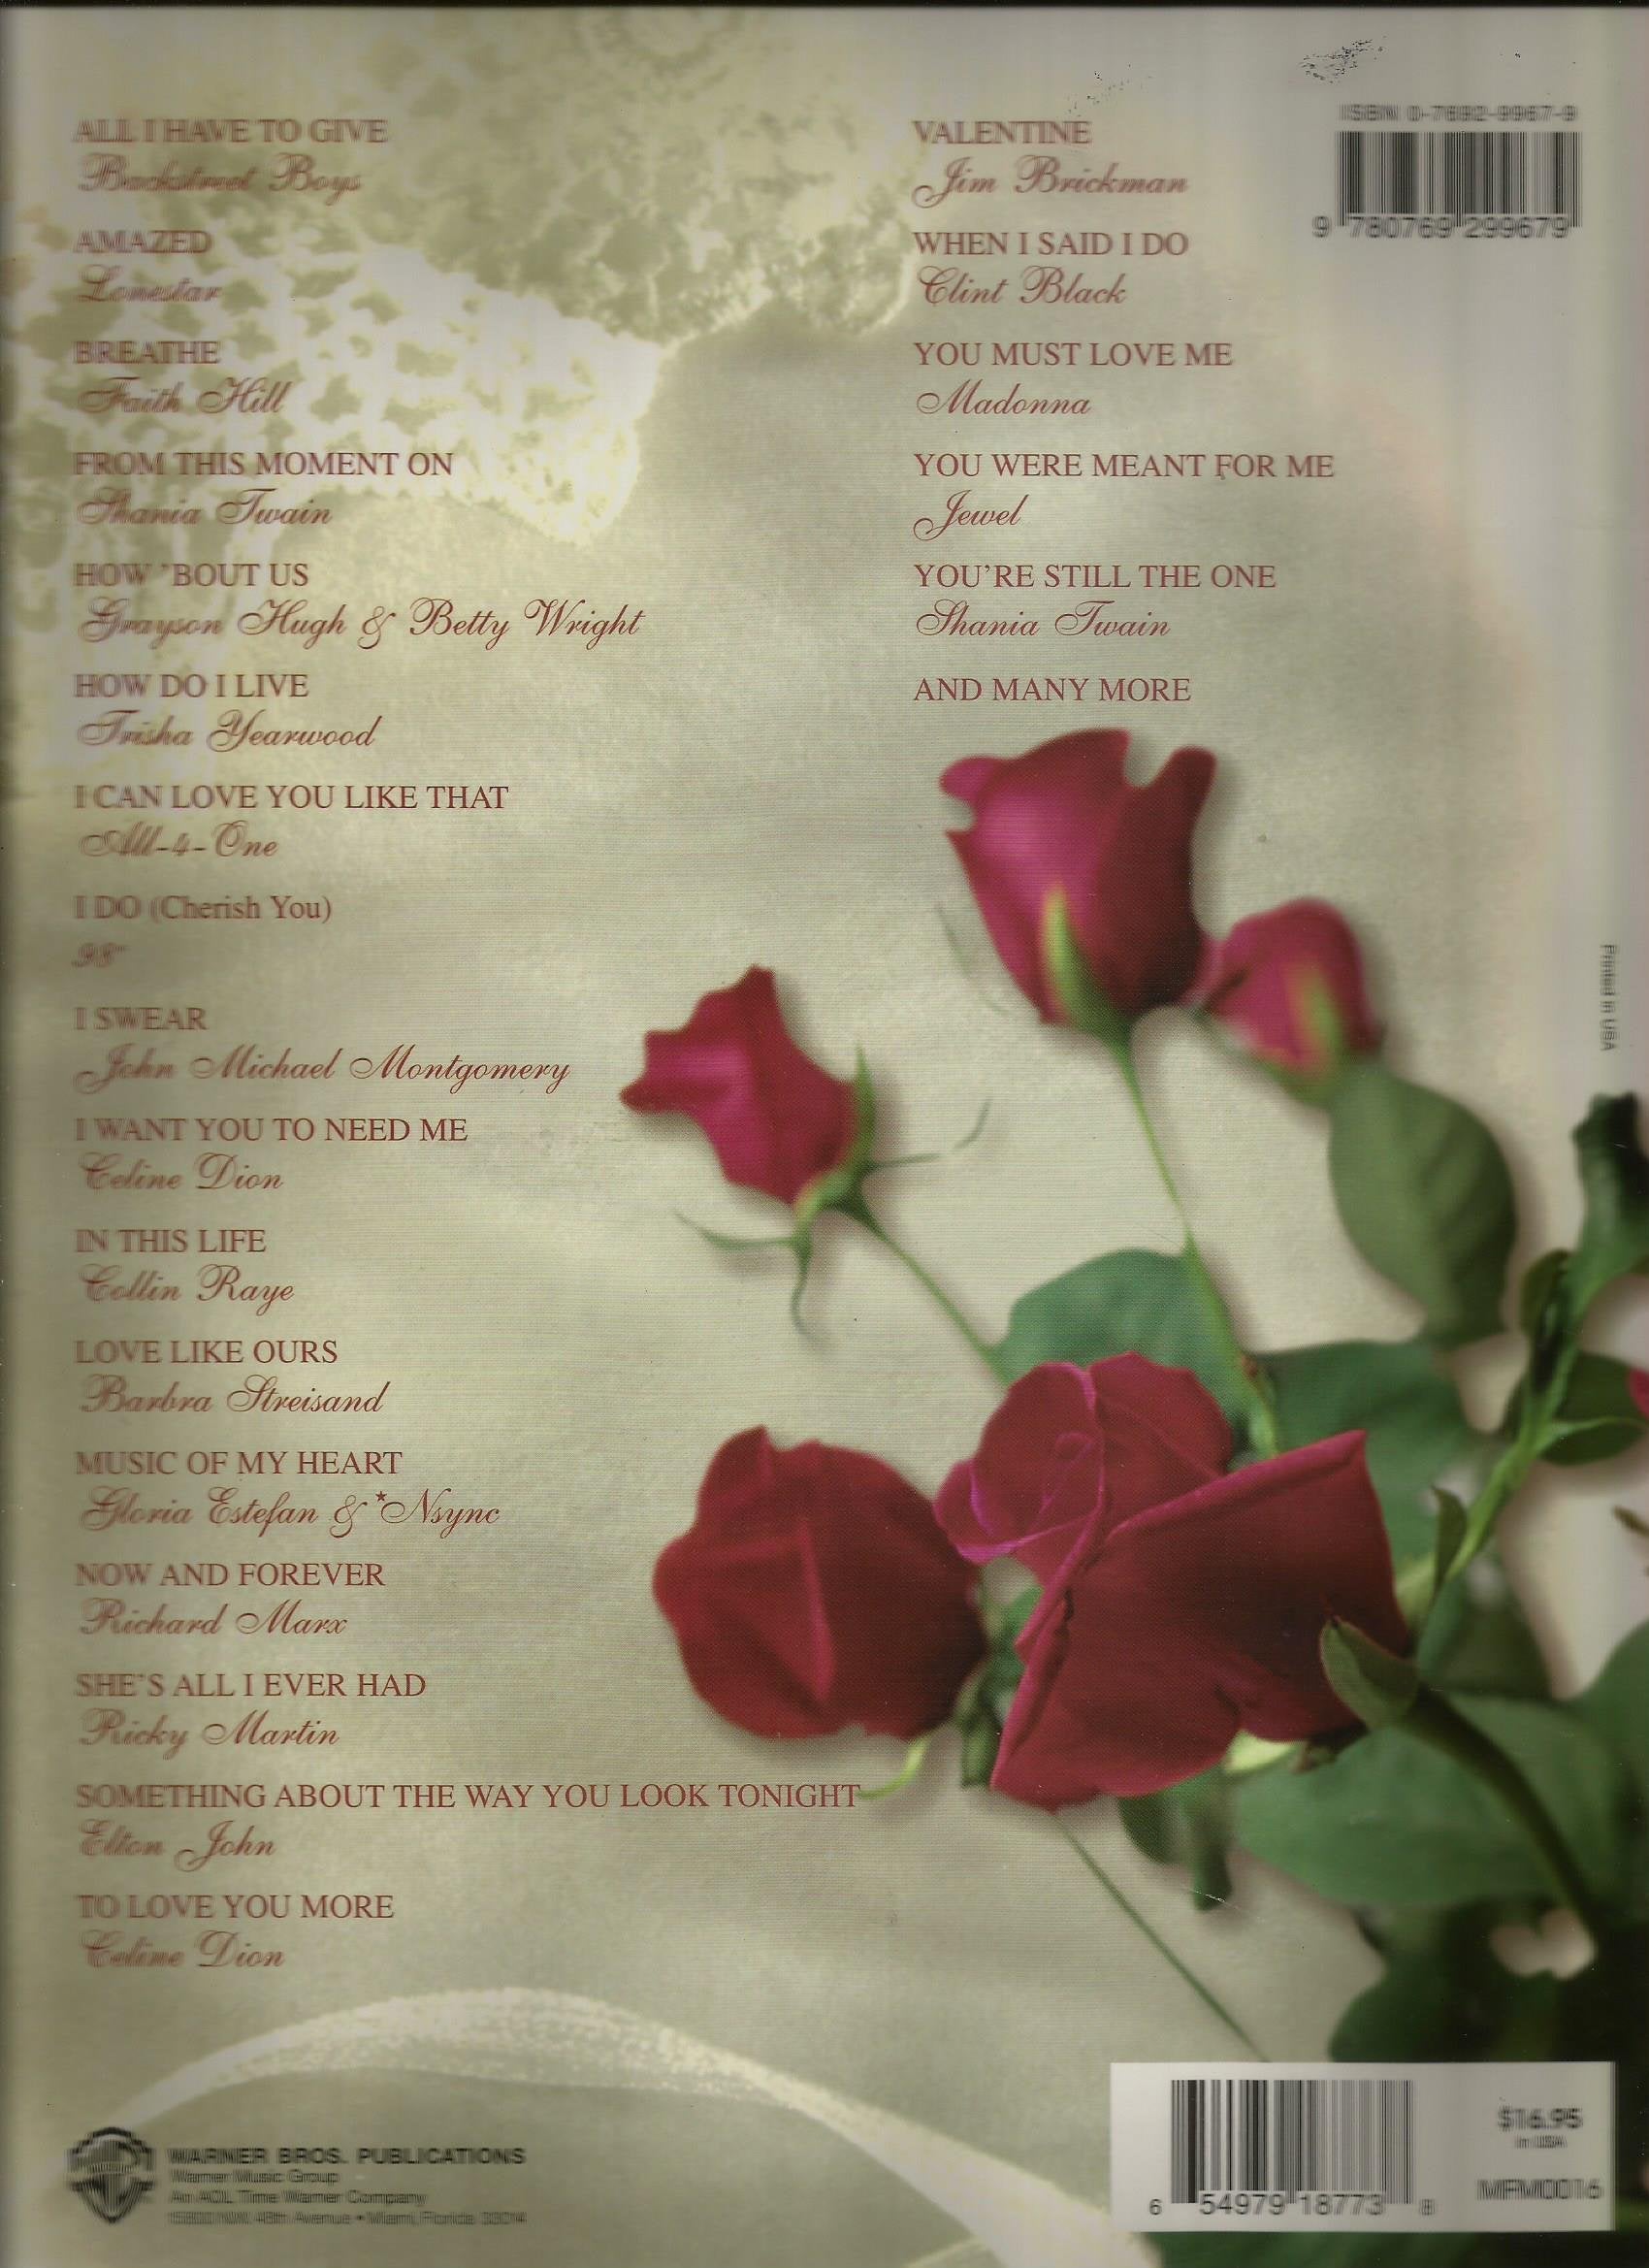 ALL I HAVE TO GIVE
Backstreet Boys
AMAZED
Lonestar
BREATHE
Faith Hill
FROM THIS MOMENT ON
Shania Twain
HOW 'BOUT US
Grayson Hugh & Betty Wright
HOW DO I LIVE
Trisha Yearwood
I CAN LOVE YOU LIKE THAT
All-4-One
I DO (Cherish You)
98°
I SWEAR
John Michael Montgomery
I WANT YOU TO NEED ME
Celine Dion
IN THIS LIFE
Collin Raye
LOVE LIKE OURS
Barbra Streisand
MUSIC OF MY HEART
Gloria Estefan & *Nsync
NOW AND FOREVER
Richard Marx
SHE'S ALL I EVER HAD
Ricky Martin
SOMETHING ABOUT THE WAY YOU LOOK TONIGHT
Elton John
TO LOVE YOU MORE
Celine Dion
VALENTINE
Jim Brickman
WHEN I SAID I DO
Clint Black
YOU MUST LOVE ME
Madonna
YOU WERE MEANT FOR ME
Jewel
YOU'RE STILL THE ONE
Shania Twain
AND MANY MORE
ISBN 0-7692-9967-9
9 780769 299679
Printed in USA
WARNER BROS. PUBLICATIONS
Warner Music Group
An AOL Time Warner Company
15800 NW 48th Avenue • Miami, Florida 33014
6 54979 18773 8
$16.95
in USA
MFM0016